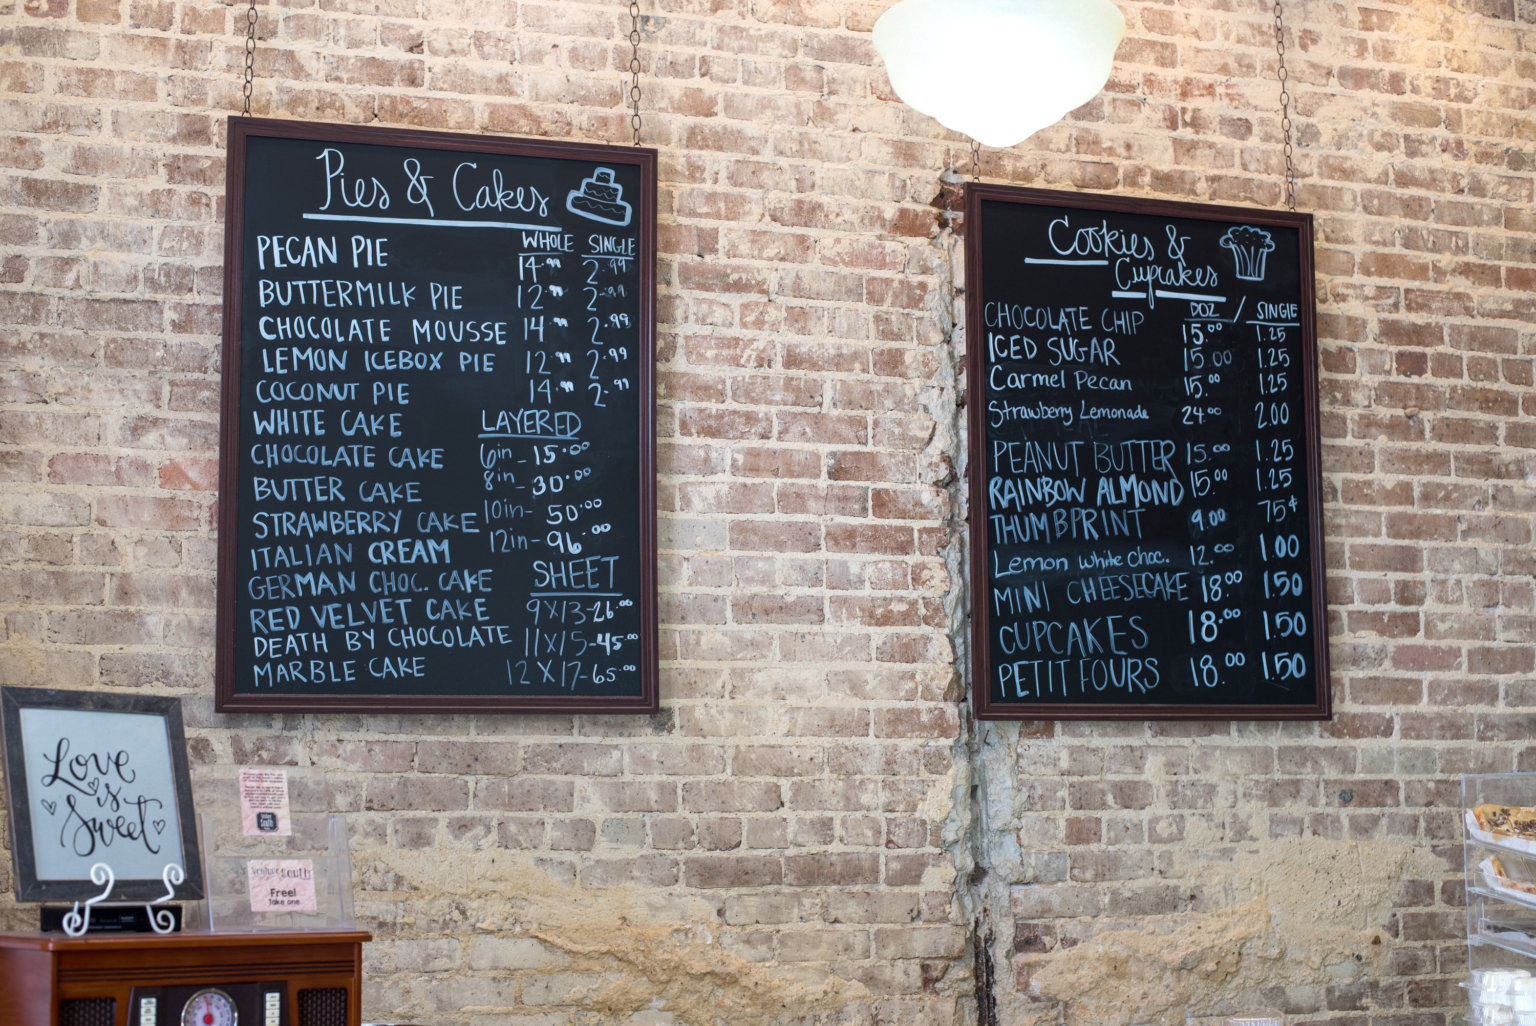 Pies & Cakes
WHOLE SINGLE
PECAN PIE 14.99 2.99
BUTTERMILK PIE 12.99 2.99
CHOCOLATE MOUSSE 14.99 2.99
LEMON ICEBOX PIE 12.99 2.99
COCONUT PIE 14.99 2.99
WHITE CAKE LAYERED
CHOCOLATE CAKE 6in - 15.00
BUTTER CAKE 8in - 30.00
STRAWBERRY CAKE 10in - 50.00
ITALIAN CREAM 12in - 96.00
GERMAN CHOC. CAKE SHEET
RED VELVET CAKE 9X13-26.00
DEATH BY CHOCOLATE 11X15-45.00
MARBLE CAKE 12X17-65.00
Cookies &
Cupcakes
DOZ / SINGLE
CHOCOLATE CHIP 15.00 1.25
ICED SUGAR 15.00 1.25
Carmel Pecan 15.00 1.25
Strawberry Lemonade 24.00 2.00
PEANUT BUTTER 15.00 1.25
RAINBOW ALMOND 15.00 1.25
THUMBPRINT 9.00 75¢
Lemon white choc. 12.00 1.00
MINI CHEESECAKE 18.00 1.50
CUPCAKES 18.00 1.50
PETIT FOURS 18.00 1.50
Love
is
Sweet
Free!
Take one